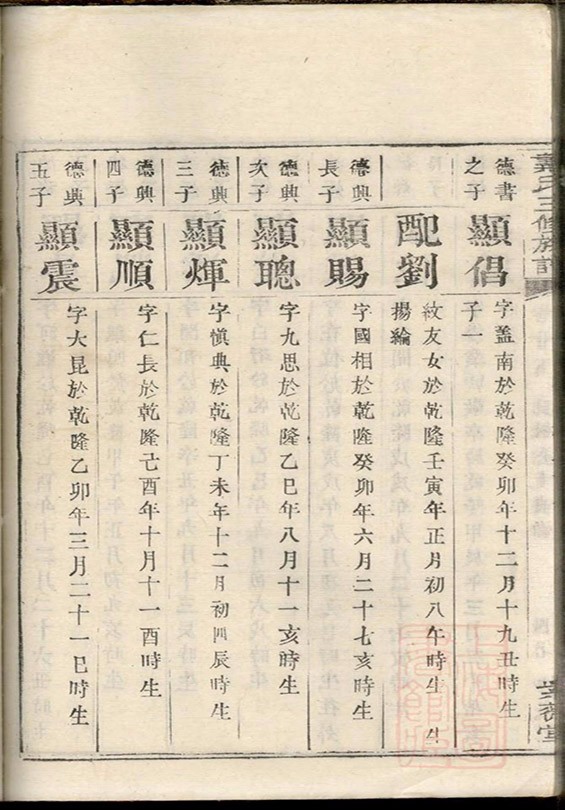 氏三修族譜
德書之子
顯倡
字蓋南於乾隆癸卯年十二月十九丑時生
子一
配劉
紋友女於乾隆壬寅年正月初八午時生 生
揚綸
德興長子
顯賜
字國相於乾隆癸卯年六月二十七亥時生
德興次子
顯聰
字九思於乾隆乙巳年八月十一亥時生
德興三子
顯煇
字愼典於乾隆丁未年十二月初四辰時生
德興四子
顯順
字仁長於乾隆己酉年十月十一酉時生
德興五子
顯震
字大昆於乾隆乙卯年三月二十一巳時生